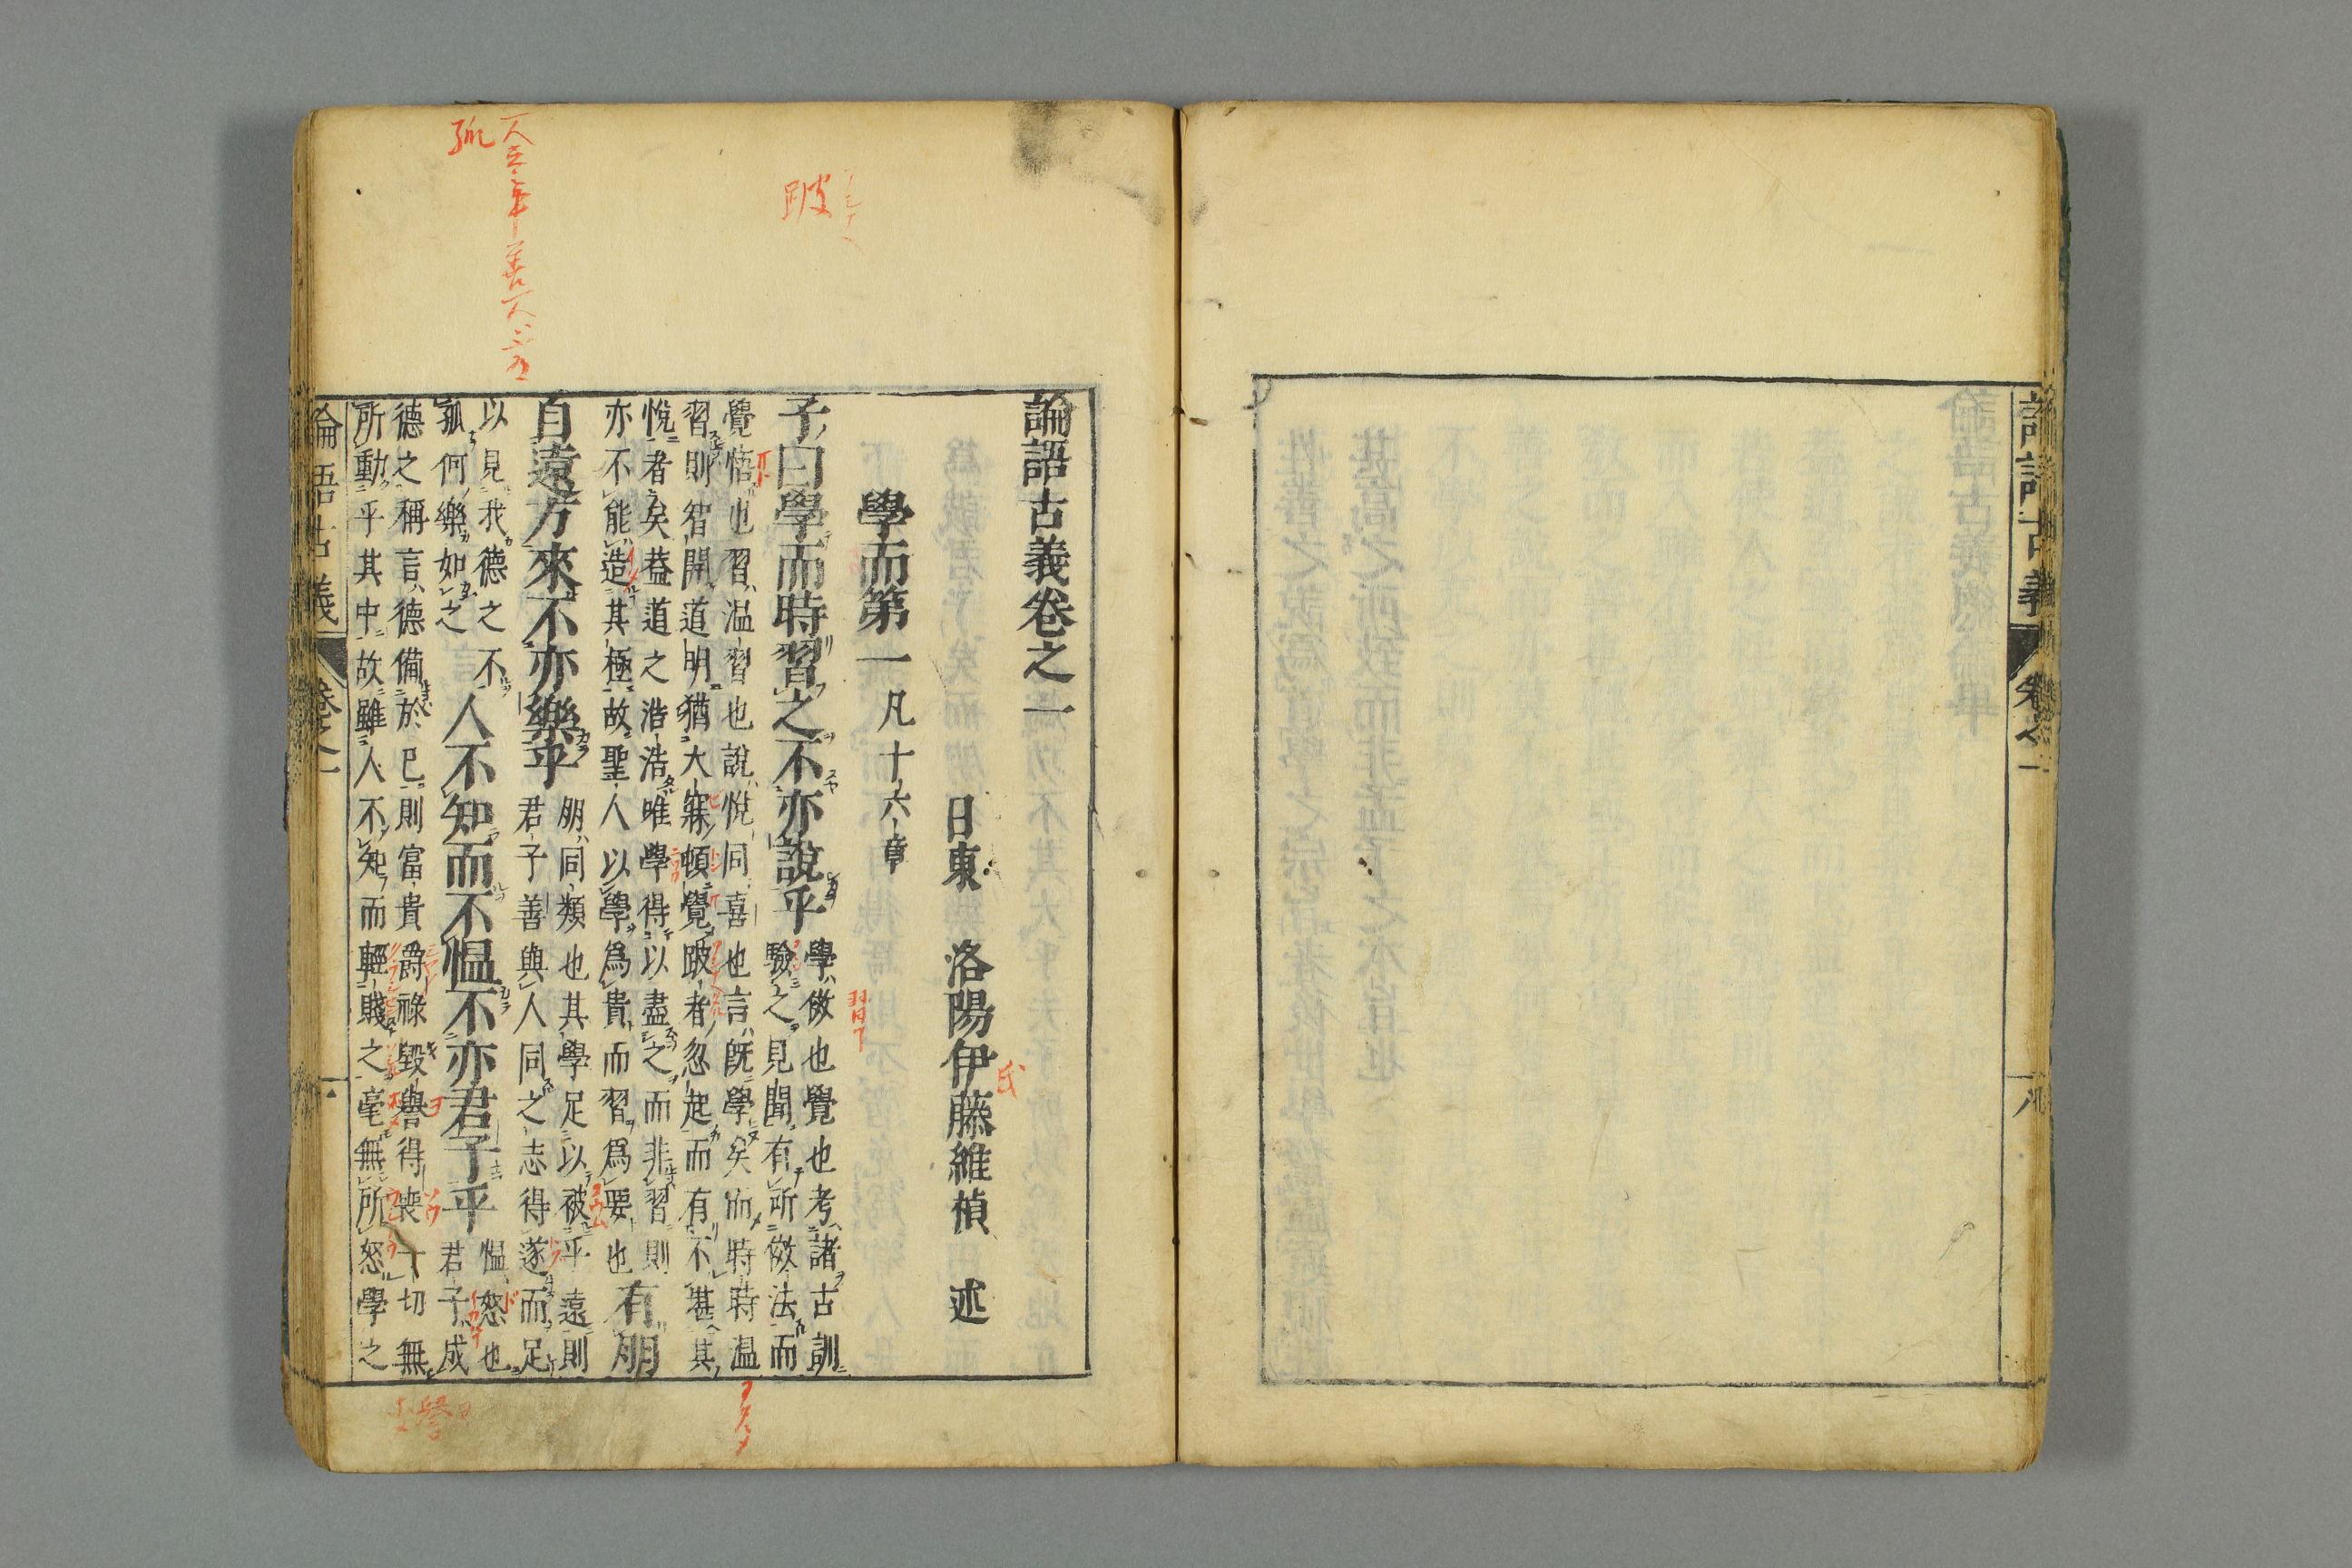 論語古義
卷之一
八
論語古義卷之一
日東 洛陽伊藤維楨 述
氏
學而第一 凡十六章
子曰學而時習之不亦說乎
學傚也覺也考諸古訓
驗之見聞有所傚法而
覺悟也習溫習也說悅同喜也言既學矣而時時温
習則智開道明猶大寐頓覺跛者忽起而有不堪其
悅者矣蓋道之浩浩唯學得以盡之而非習則
亦不能造其極故聖人以學爲貴而習爲要也
有朋
自遠方來不亦樂乎
朋同類也其學足以被乎遠則
君子善與人同之志得遂而足
以見我德之不
孤何樂如之
人不知而不慍不亦君子乎
慍怒也
君子成
德之稱言德備於己則富貴爵祿毀譽得喪一切無
所動乎其中故雖人不知而輕賤之毫無所怒學之
論語古義
卷之一
一
跛
譽